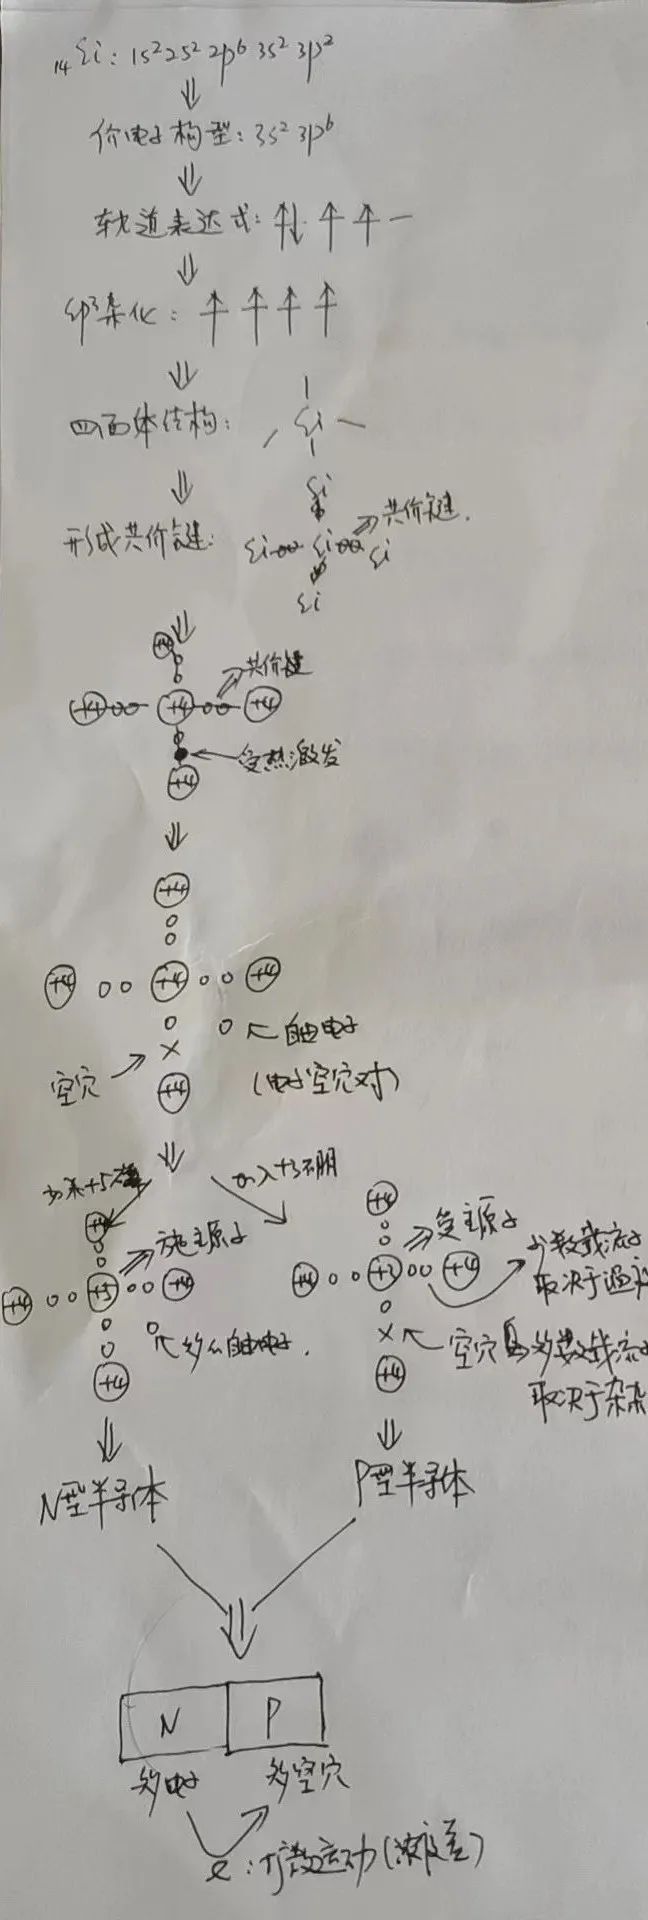 14Si: 1s² 2s² 2p⁶ 3s² 3p²
价电子构型: 3s² 3p⁶
轨道表达式: ↑↓ ↑ ↑ —
sp³杂化: ↑ ↑ ↑ ↑
四面体结构: Si
形成共价键:
Si
Si Si Si
Si
共价键.
+4
+4 +4 +4
共价键
受热激发
+4
+4
+4 +4 +4
自由电子
空穴 ×
(电子空穴对)
+4
加入+3硼
+4
+4 +5 +4
施主原子
多余自由电子.
+4
+4
+4 +3 +4
受主原子
少数载流子
取决于温
× 空穴 多数载流子
取决于杂
+4
N型半导体
P型半导体
N P
多电子 多空穴
e: 扩散运动(浓度差)